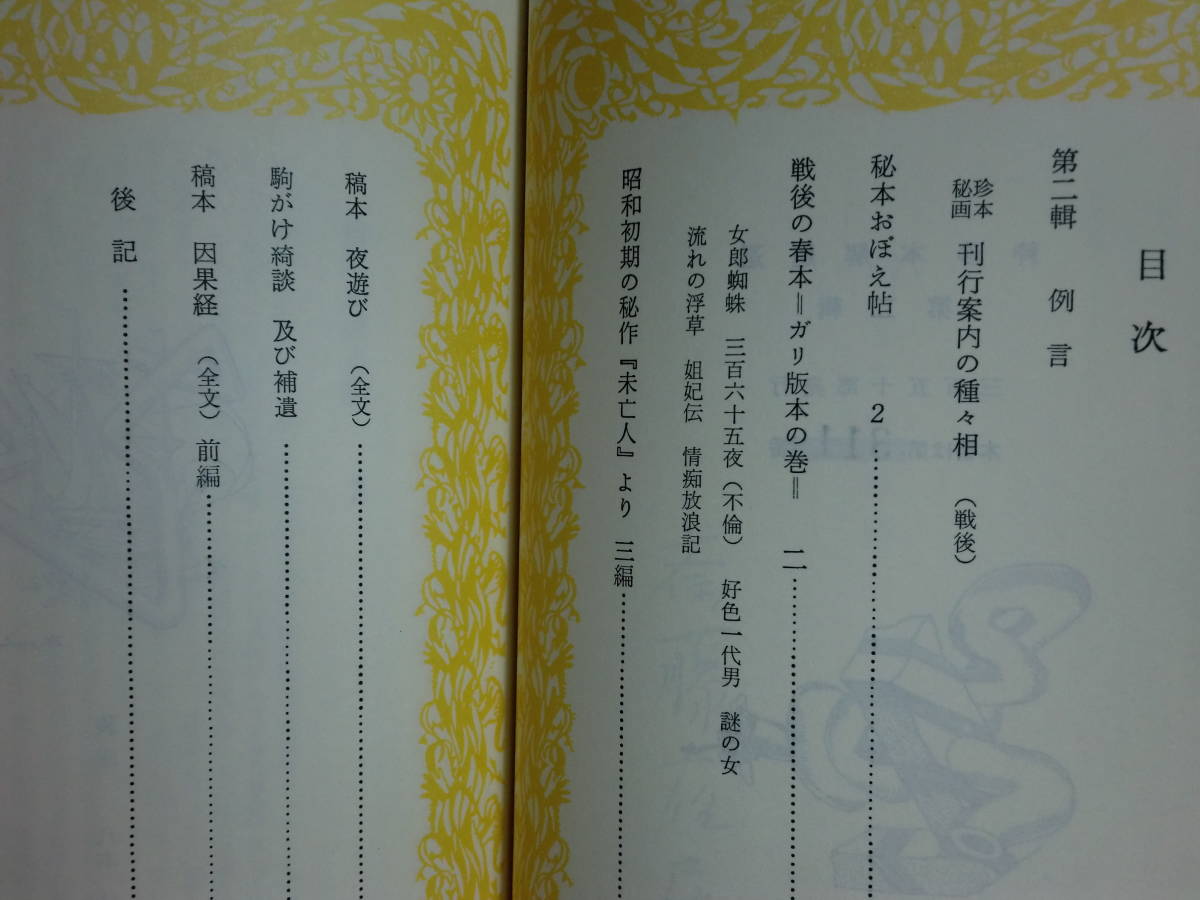 目次
第二輯　例言
珍本
秘画　刊行案内の種々相　（戦後）
秘本おぼえ帖　2……………
戦後の春本＝ガリ版本の巻＝　二……………
女郎蜘蛛　三百六十五夜（不倫）　好色一代男　謎の女
流れの浮草　姐妃伝　情痴放浪記
昭和初期の秘作『未亡人』より　三編……………
稿本　夜遊び　（全文）……………
駒がけ綺談　及び補遺……………
稿本　因果経　（全文）前編……………
後記……………